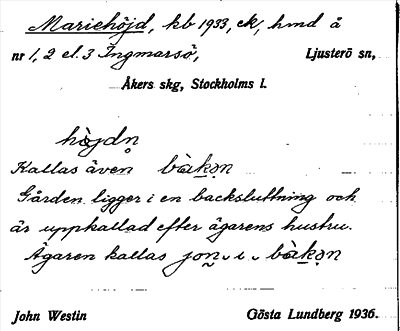 Mariehöjd, kb 1933, ek, hmd å
nr 1, 2 el. 3 Ingmarsö, Ljusterö sn,
Åkers skg, Stockholms l.
hö̀jdn̥
Kallas även bàkn̥
Gården ligger i en backsluttning och
är uppkallad efter ägarens hustru.
Ägaren kallas jon i bàkn̥
John Westin Gösta Lundberg 1936.